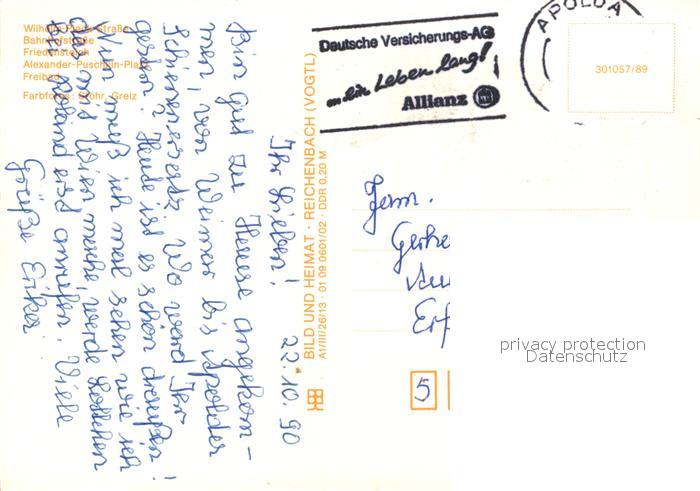 Wilhelm-Pieck-Straße
Bahnhofstraße
Friedenstein
Alexander-Puschkin-Platz
Freibad
Farbfotos: Stöhr, Greiz
Deutsche Versicherungs-AG
... ein Leben lang!
Allianz
APOLDA
301057/89
BILD UND HEIMAT · REICHENBACH (VOGTL)
A1/III/26/13 · 01 09 0601/02 · DDR 0,20 M
22.10.90
Ihr Lieben!
Bin gut zu Hause angekom-
men, von Weimar bis Apolda
Schienenersatz. Wo werd Ihr
gesein? Heute ist es schön draußen!
Nun muß ich mal sehen wie ich
das mit Wien mache, werde
erst anrufen. Viele
Grüße Erika
Fam.
Gerke
Erf
5
privacy protection
Datenschutz